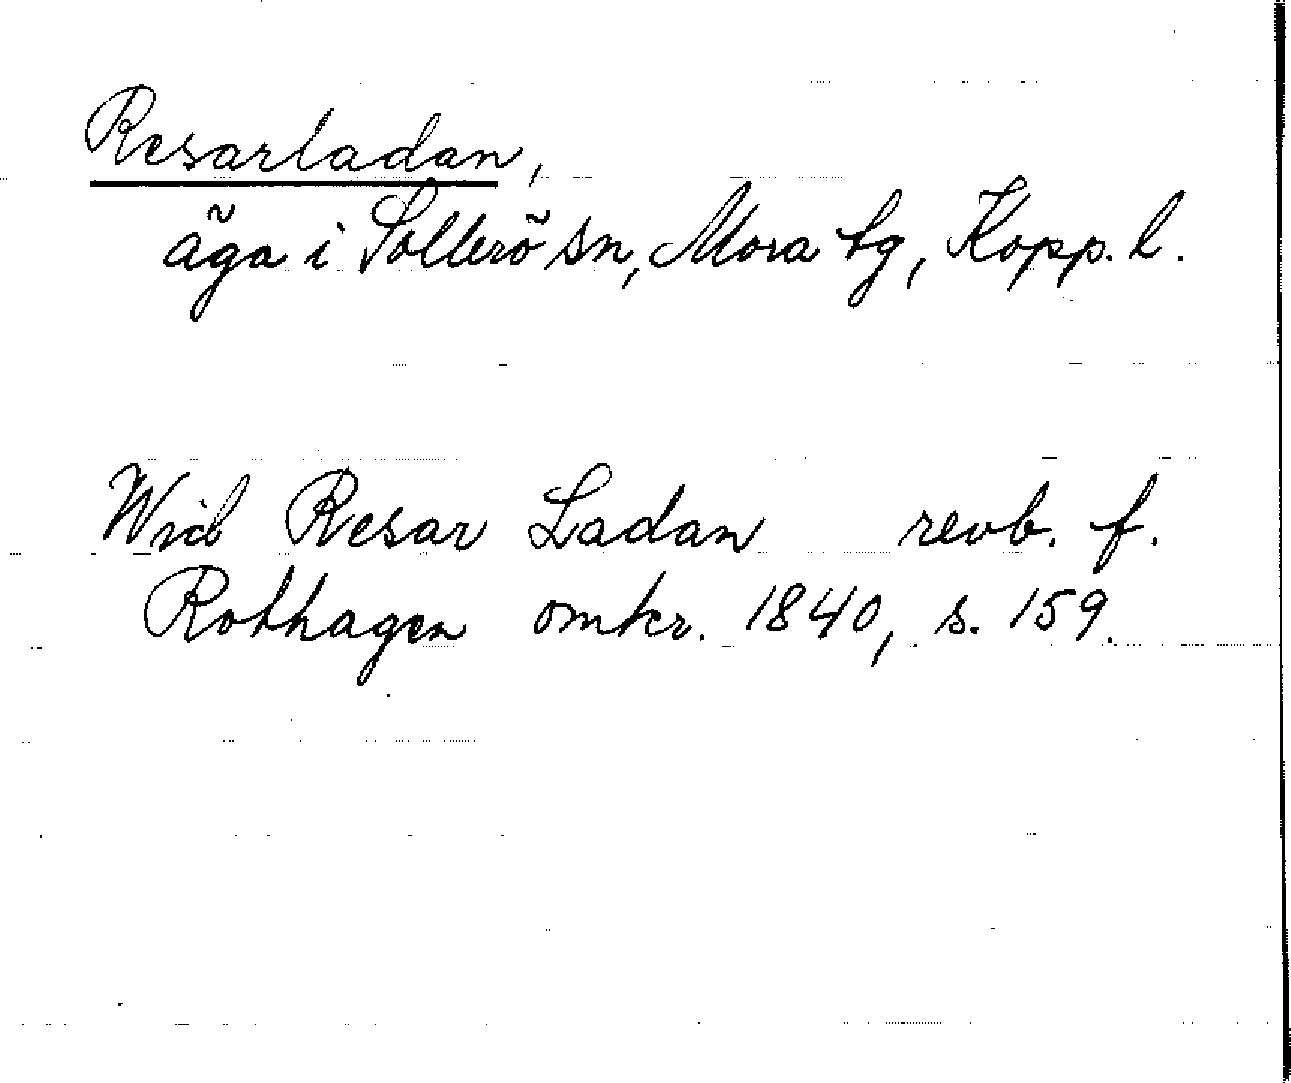 Resarladan,
äga i Sollerö sn, Mora tg, Kopp. l.
Wid Resar Ladan revb. f.
Rothagen omkr. 1840, s. 159.